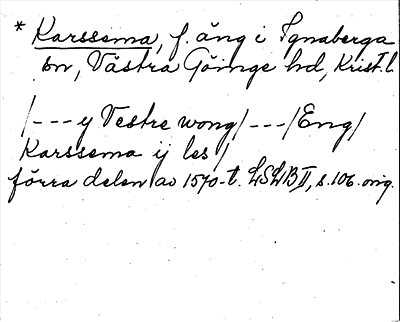 * Karssema, f. äng i Ignaberga
sn, Västra Göinge hd, Krist. l.
/---y Vestre wong/---/Eng/
Karssema ij les/
förra delen av 1570-t. LSLB II, s. 106. orig.